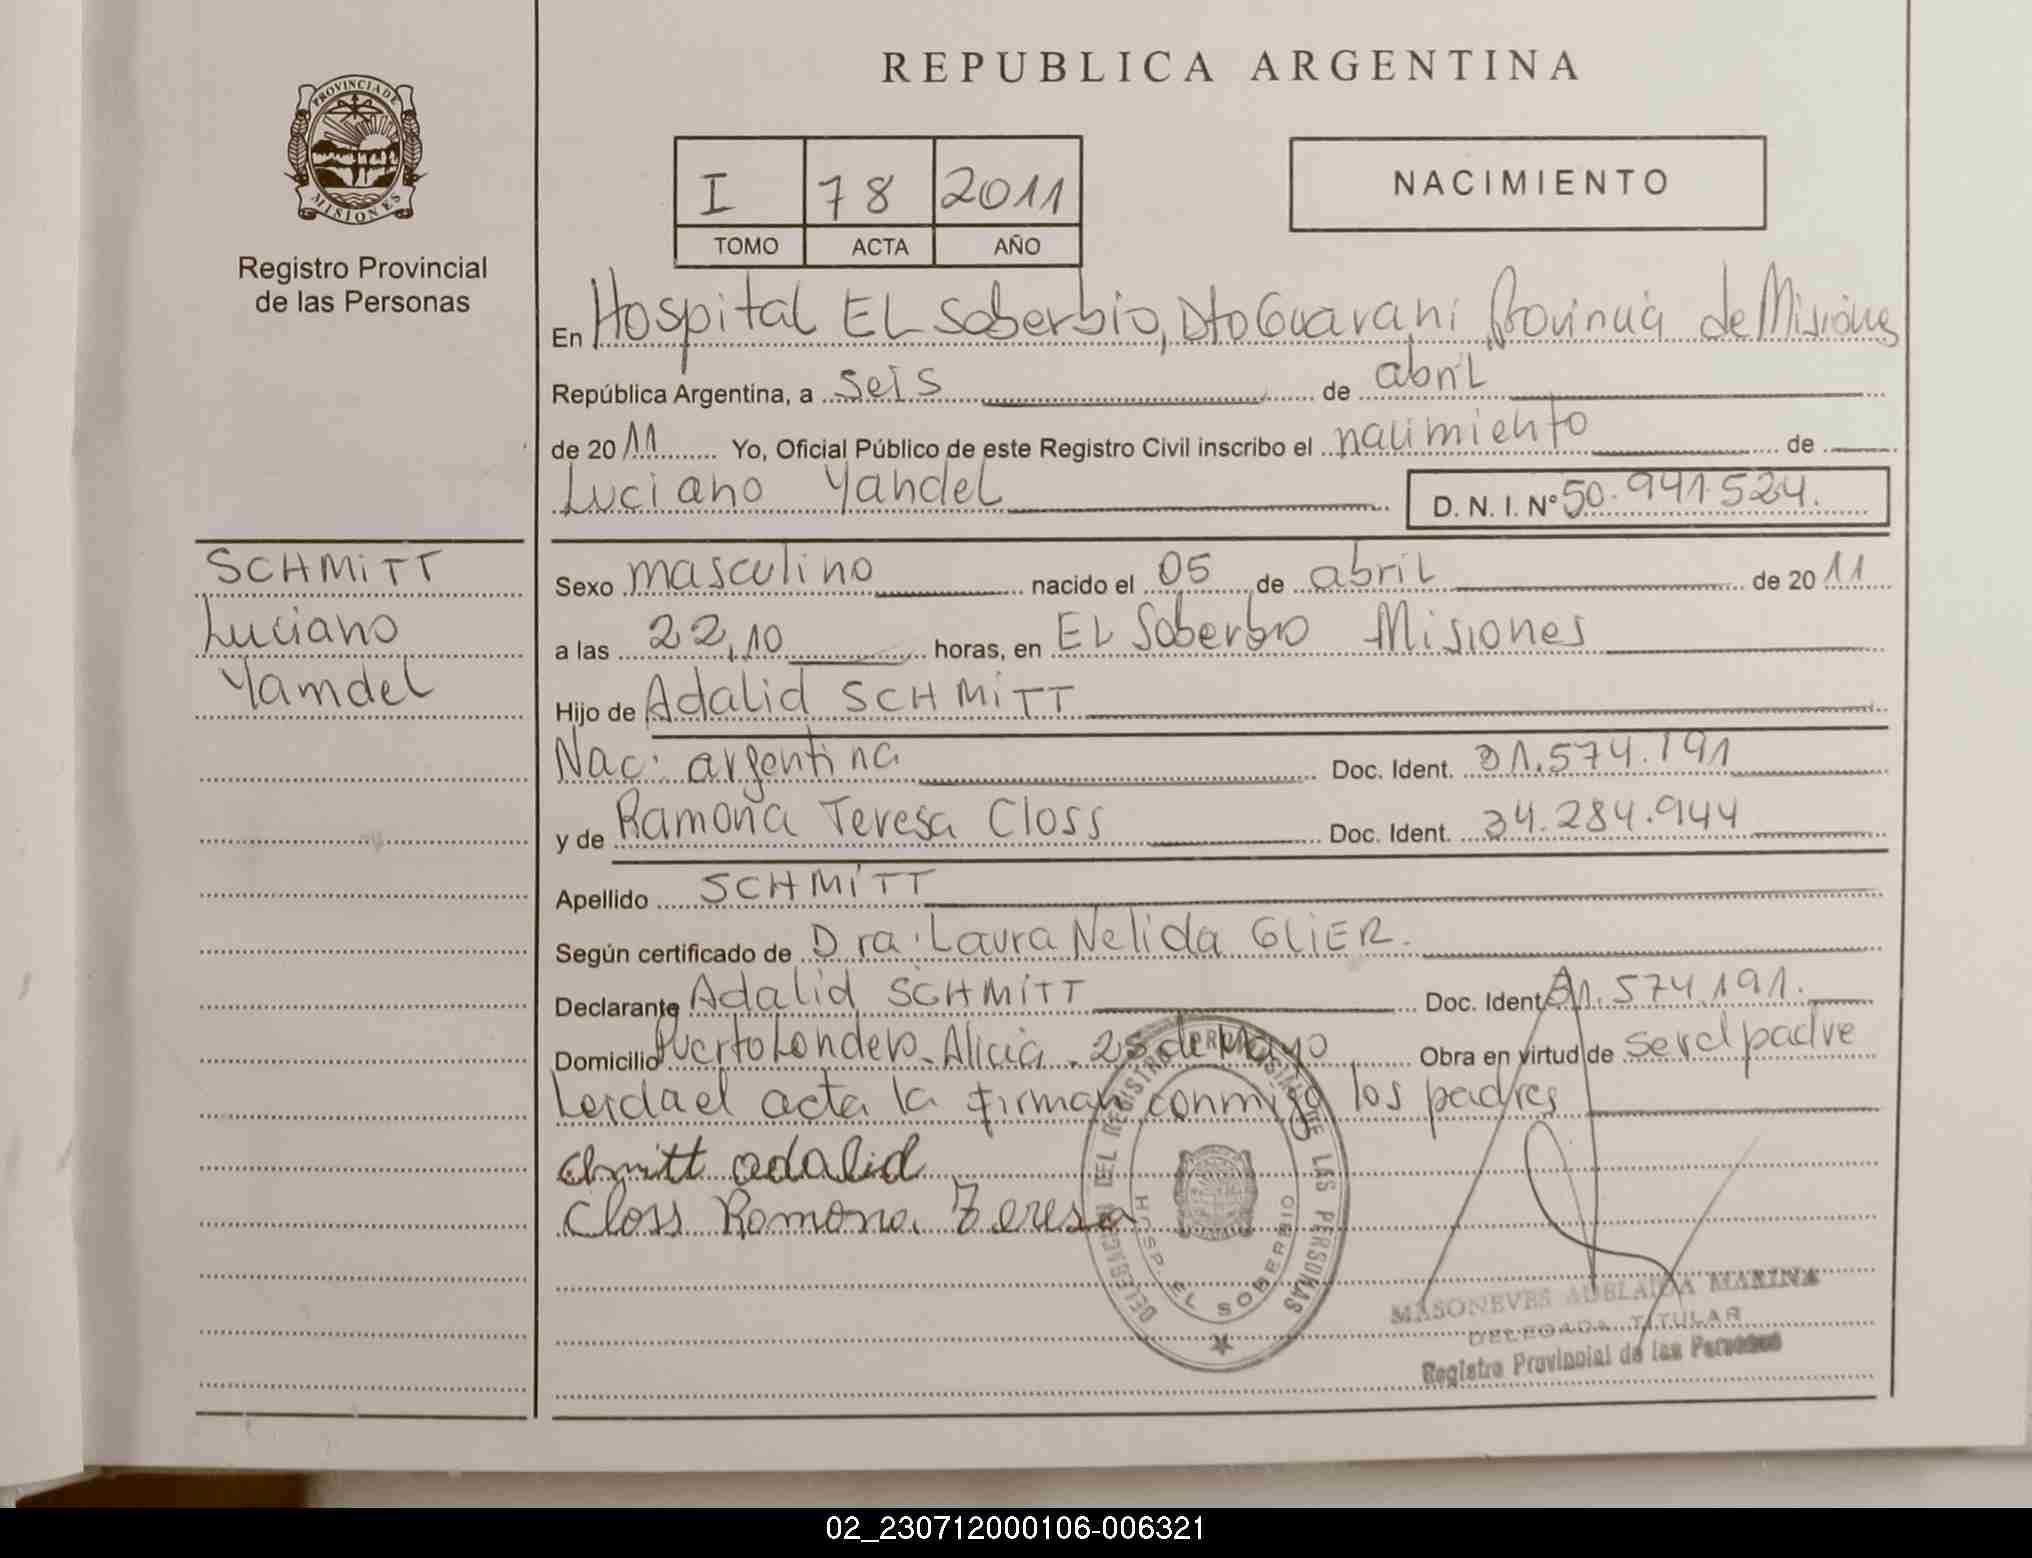 REPUBLICA ARGENTINA
PROVINCIA DE
MISIONES
Registro Provincial
de las Personas
I 78 2011
TOMO ACTA AÑO
NACIMIENTO
En Hospital EL Soberbio, Dto Guarani Provincia de Misiones
República Argentina, a seis de abril
de 2011 Yo, Oficial Público de este Registro Civil inscribo el nacimiento de
Luciano Yandel D. N. I. Nº 50.941.524.
SCHMITT
Luciano
Yamdel
Sexo masculino nacido el 05 de abril de 2011
a las 22,10 horas, en EL Soberbio Misiones
Hijo de Adalid SCHMITT
Nac: argentina Doc. Ident. 31.574.191
y de Ramona Teresa Closs Doc. Ident. 34.284.944
Apellido SCHMITT
Según certificado de Dra. Laura Nelida GLIER.
Declarante Adalid SCHMITT Doc. Ident. 31.574.191.
Domicilio Puerto Londero. Alicia. 25 de Mayo Obra en virtud de ser el padre
Leida el acta la firman conmigo los padres
chmitt adalid
Closs Ramona Teresa
DELEGACION DEL REGISTRO PROVINCIAL DE LAS PERSONAS
HOSP. EL SOBERBIO
MASONEVES ADELAIDA MARINA
DELEGADA TITULAR
Registro Provincial de las Personas
02_230712000106-006321